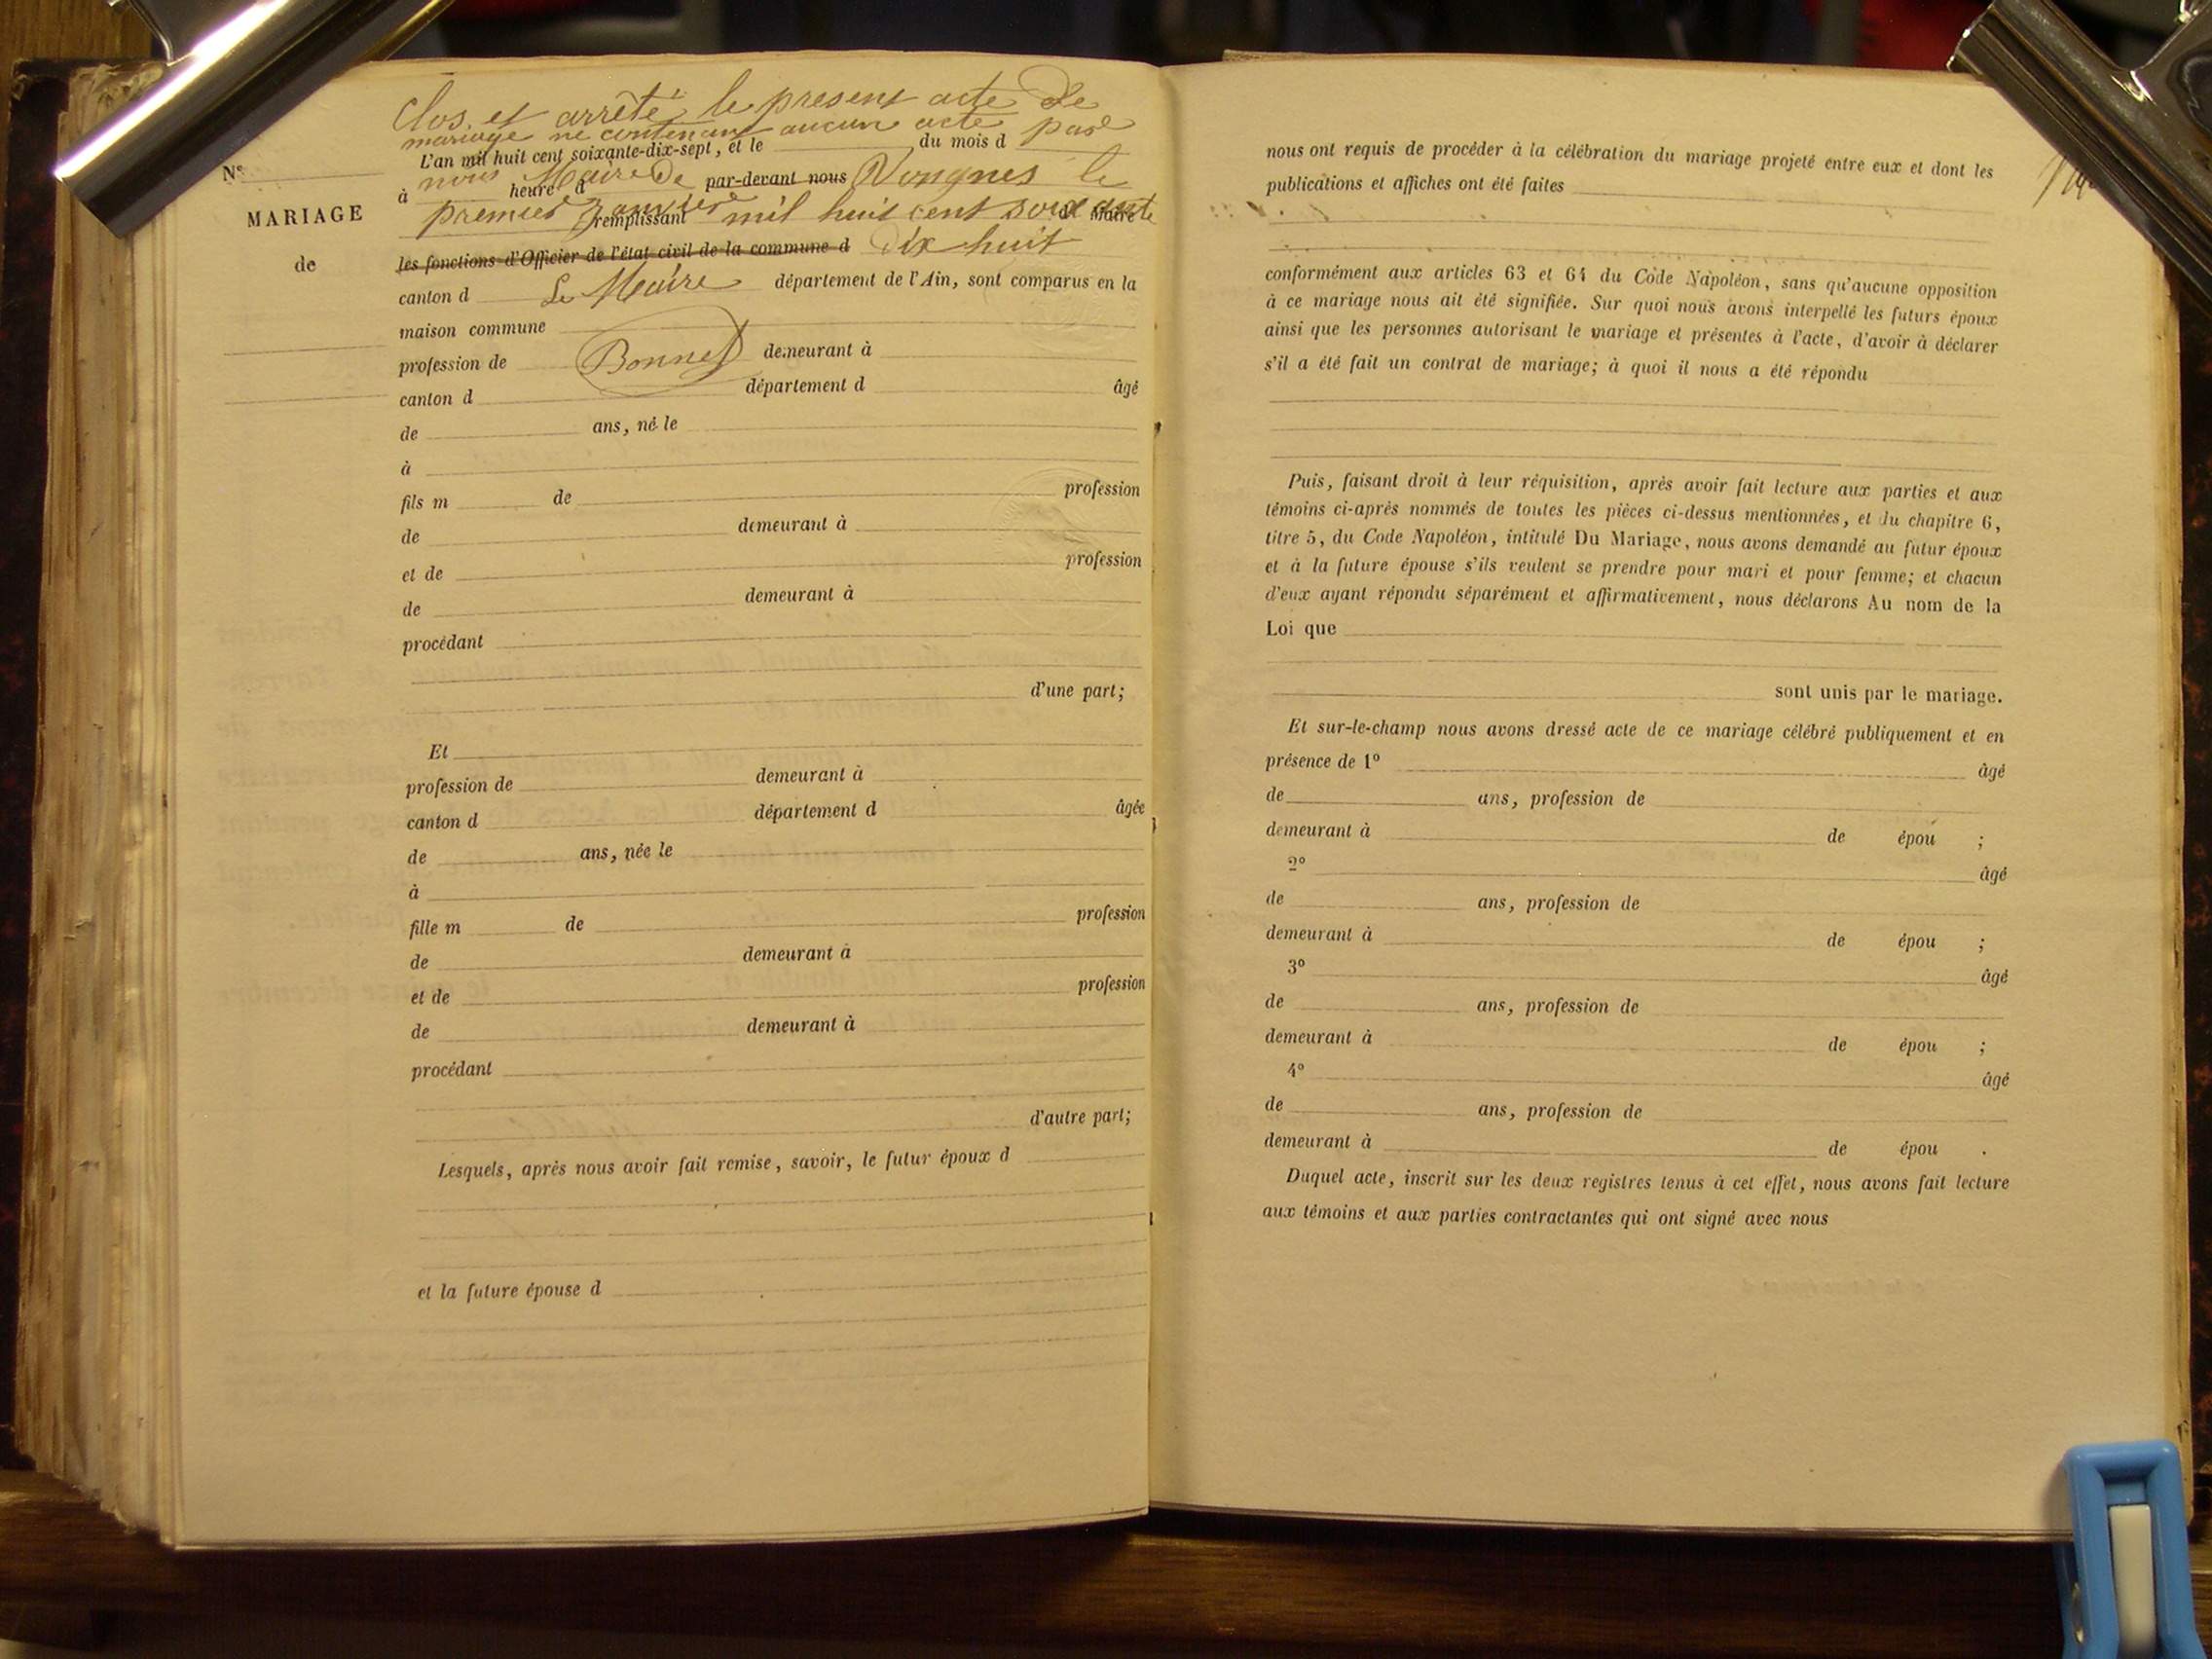 Clos et arrêté le present acte de
mariage ne contenant aucun acte par
L'an mil huit cent soixante-dix-sept, et le du mois d
nous Maire de Vongnes le
à heure d par-devant nous
premier Janvier mil huit cent soixante
remplissant Maire
les fonctions d'Officier de l'état civil de la commune d dix huit
canton d Le Maire département de l'Ain, sont comparus en la
maison commune
profession de Bonnet demeurant à
canton d département d âgé
de ans, né le
à
fils m de profession
de demeurant à
et de profession
de demeurant à
procédant
d'une part;
Et
profession de demeurant à
canton d département d âgée
de ans, née le
à
fille m de profession
de demeurant à
et de profession
de demeurant à
procédant
d'autre part;
Lesquels, après nous avoir fait remise, savoir, le futur époux d
et la future épouse d
N°
MARIAGE
de
nous ont requis de procéder à la célébration du mariage projeté entre eux et dont les
publications et affiches ont été faites
conformément aux articles 63 et 64 du Code Napoléon, sans qu'aucune opposition
à ce mariage nous ait été signifiée. Sur quoi nous avons interpellé les futurs époux
ainsi que les personnes autorisant le mariage et présentes à l'acte, d'avoir à déclarer
s'il a été fait un contrat de mariage; à quoi il nous a été répondu
Puis, faisant droit à leur réquisition, après avoir fait lecture aux parties et aux
témoins ci-après nommés de toutes les pièces ci-dessus mentionnées, et du chapitre 6,
titre 5, du Code Napoléon, intitulé Du Mariage, nous avons demandé au futur époux
et à la future épouse s'ils veulent se prendre pour mari et pour femme; et chacun
d'eux ayant répondu séparément et affirmativement, nous déclarons Au nom de la
Loi que
sont unis par le mariage.
Et sur-le-champ nous avons dressé acte de ce mariage célébré publiquement et en
présence de 1° âgé
de ans, profession de
demeurant à de épou ;
2° âgé
de ans, profession de
demeurant à de épou ;
3° âgé
de ans, profession de
demeurant à de épou ;
4° âgé
de ans, profession de
demeurant à de épou .
Duquel acte, inscrit sur les deux registres tenus à cet effet, nous avons fait lecture
aux témoins et aux parties contractantes qui ont signé avec nous